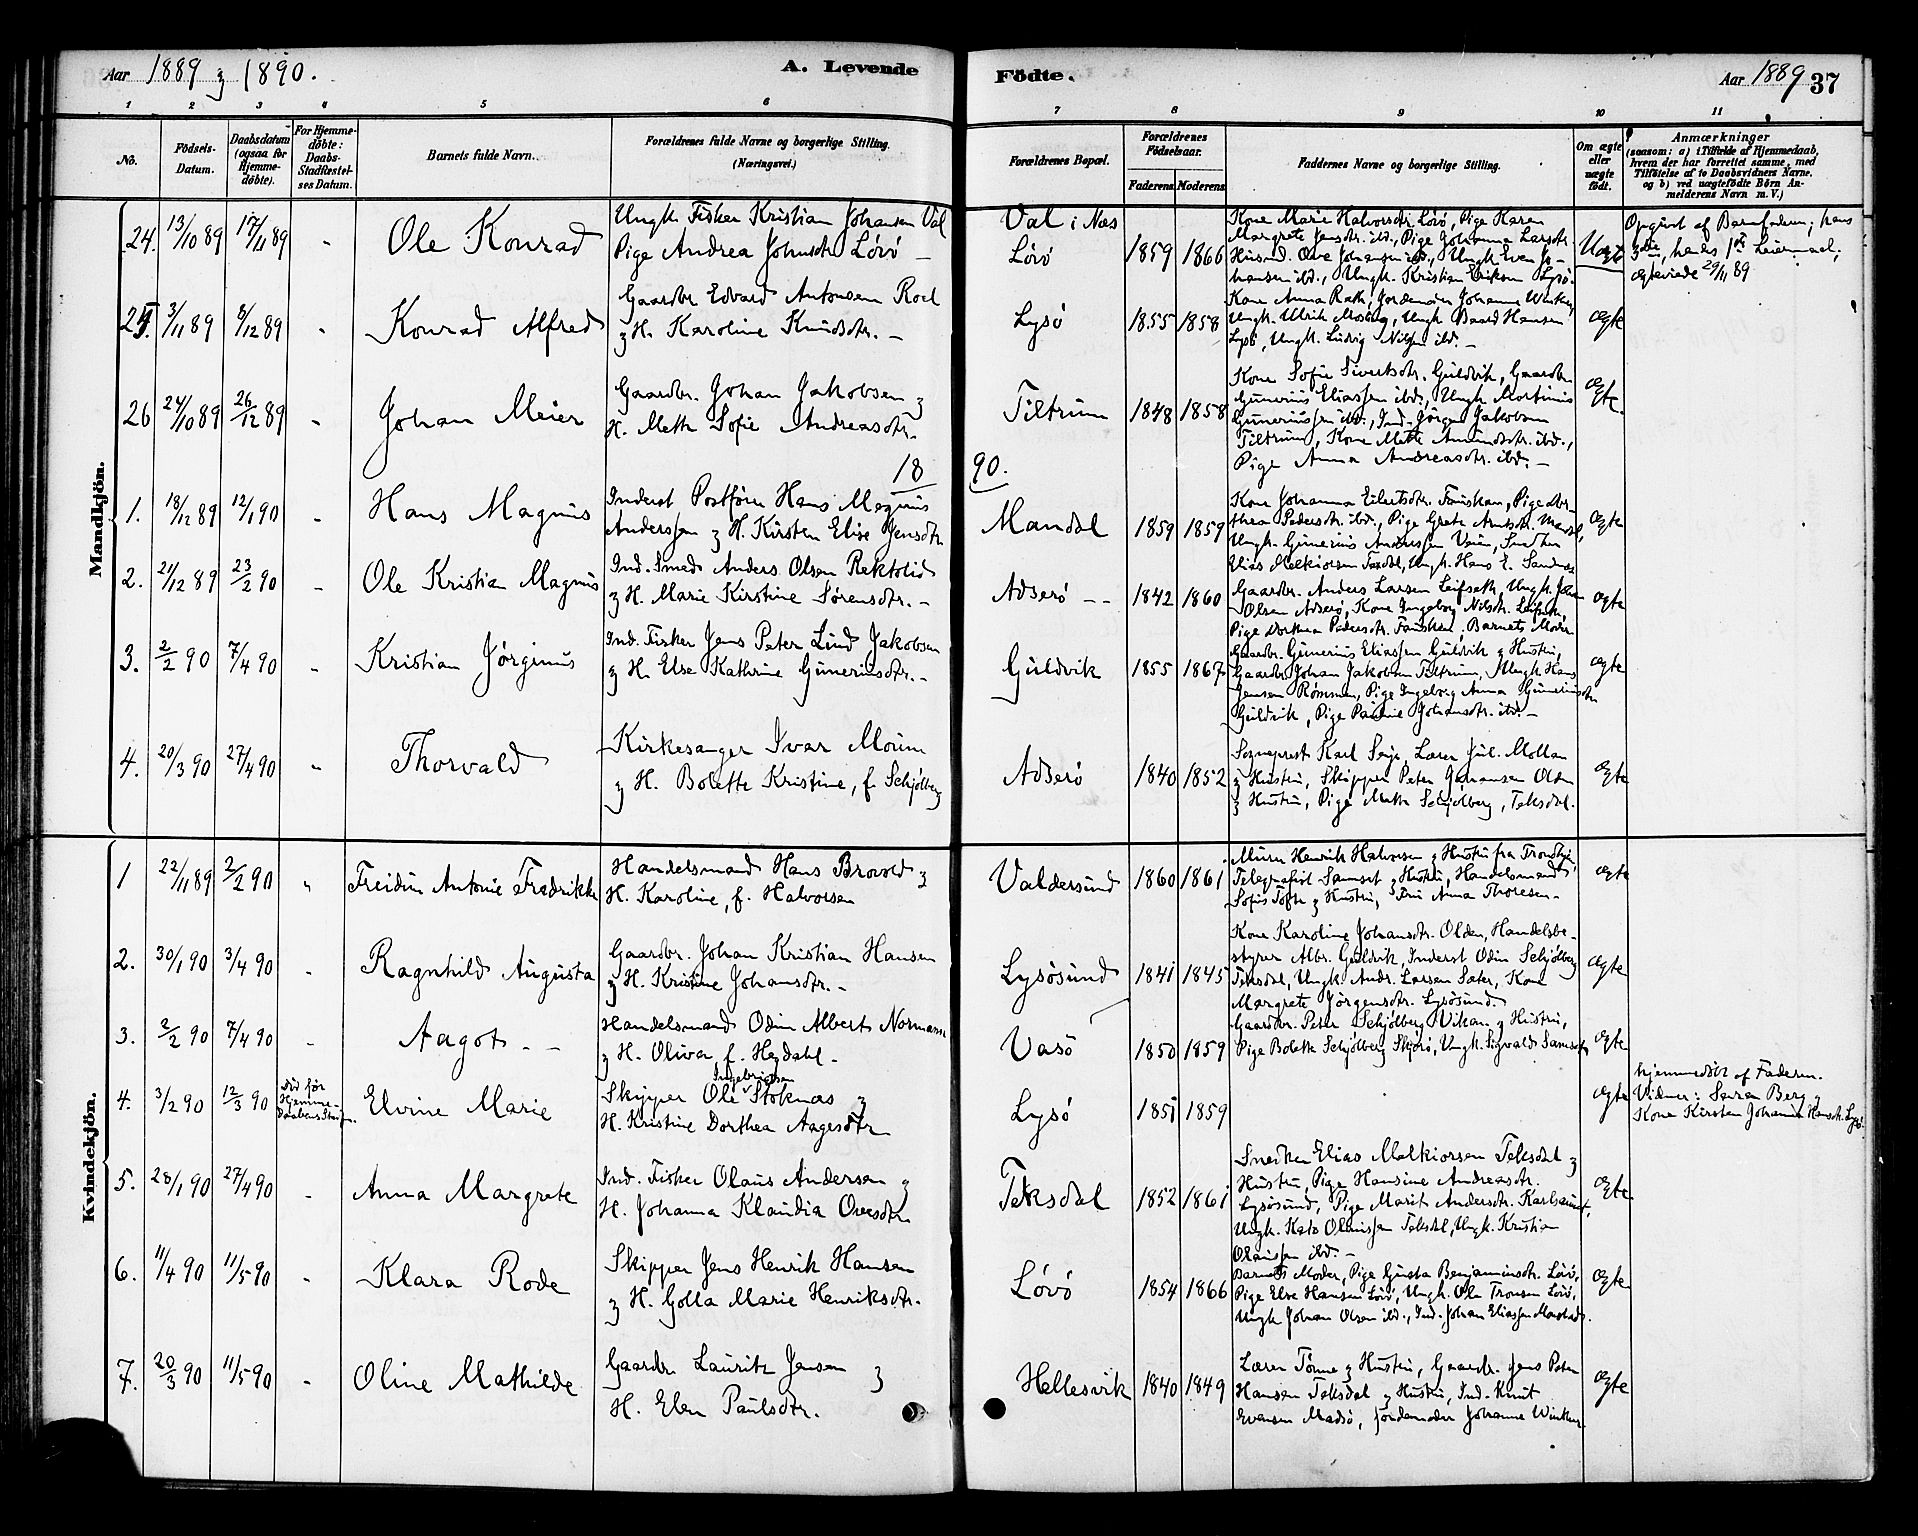 Aar 1889 & 1890.
A. Levende
Födte.
Aar 1889
37
1 2 3 4 5 6
7 8 9 10 11
No.
Födsels-Datum.
Daabsdatum (ogsaa for Hjemme-döbte).
For Hjemme-döbte: Daabs-Stadfæstel-ses Datum.
Barnets fulde Navn.
Forældrenes fulde Navne og borgerlige Stilling. (Næringsvei.)
Forældrenes Bopæl.
Forældrenes Födselsaar.
Faderens Moderens
Faddernes Navne og borgerlige Stilling.
Om ægte eller uægte födt.
Anmærkninger
(saasom: a) i Tilfælde af Hjemmedaab,
hvem der har forrettet samme, med
Tilföielse af to Daabsvidners Navne.
og b) ved uægtefödte Börn An-
melderens Navn m. V.)
Mandkjön.
24. 13/10 89 17/11 89 " Ole Konrad
Ungk. Fisker Kristian Johansen Val
Pige Andrea Johnsdtr. Løvø –
Val i Næs
Løvø 1859 1866
Kone Marie Halvorsdtr. Løvø, Pige Karen
Margrete Jensdtr. ibd., Pige Johanna Larsdtr.
Husmd. Ove Johansen ibd., Ungk. Even Jo-
hansen ibd., Ungk. Kristian Eriksen Lysø.
Uægte
Opgivet af Barnefaderen; hans
3die, hendes 1ste Leiermaal;
ægteviede 29/11 89
25. 3/11 89 8/12 89 " Konrad Alfred
Gaardbr. Edvard Antonsen
& H. Karoline Knudsdtr. –
Lysø 1855 1858
Kone Anna Rath, Jordemoder Johanne
Ungk. Ulrik, Ungk. Baard Hansen
Lysø, Ungk. Ludvig Nilsen ibd. –
ægte
26 24/10 89 26/12 89 " Johan Meier
Gaardbr. Johan Jakobsen &
H. Mette Sofie Andreasdtr. –
Tiltrum 1848 1858
Kone Sofie Sivertsdtr. Guldvik, Gaardbr.
Gunerius Eliassen ibd., Ungk. Martinus
Guneriussen ibd., Ind. Jørgen Jakobsen
Tiltrum, Kone Mette Amundsdtr. ibd.,
Pige Anna Andreasdtr. ibd. –
ægte.
18 90.
1. 18/12 89 12/1 90 " Hans Magnus
Inderst Postfører Hans Magnus
Anderssen & H. Kirsten Elise Jensdtr.
Mandal 1859 1859
Kone Johanna Eilertsdtr. Fauskan, Pige Dor-
thea Pedersdtr. ibd., Pige Grete Arntsdtr. Mandal,
Ungk. Gunerius Anderssen
ægte
2. 21/12 89 23/2 90 " Ole Kristian Magnus
Ind. Smed Anders Olsen Rektolid
& H. Marie Kirstine Sørensdtr. –
Adserø – – 1842 1860
Elias Melkiorsen Teksdal, Ungk. Hans E.
Gaardbr. Anders Larsen Leifseth, Ungk. Johan
Olsen Adserø, Kone Ingeborg Nilsdtr. Leifseth,
Pige Dorthea Pedersdtr. Fauskan, Barnets Moder
ægte
3. 2/2 90 7/4 90 " Kristian Jørginus
Ind. Fisker Jens Peter Lind Jakobsen
& H. Else Kathrine Guneriusdtr. –
Guldvik 1855 1867
Gaardbr. Gunerius Eliassen Guldvik & Hustru,
Gaardbr. Johan Jakobsen Tiltrum, Ungk. Hans
Jensen Rømmen, Pige Ingeborg Anna Guneriusdtr.
Guldvik, Pige Pauline Johansdtr. ibd. –
ægte
4. 20/3 90 27/4 90 " Thorvald
Kirkesanger Ivar Morum
& H. Bolette Kristine, f. Schjølberg
Adserø 1840 1852
Sogneprest Karl Seip, Lærer Jul. Mollan
& Hustru, Skipper Peter Johansen Olden
& Hustru, Pige Mette Schjølberg, Teksdal.
ægte
Kvindekjön.
1 22/11 89 2/2 90 " Freidun Antonie Fredrikke
Handelsmand Hans Brovold &
H. Karoline, f. Halvorsen
Valdersund 1860 1861
Murer Henrik Halvorsen & Hustru fra Trondhjem,
Telegrafist Samset & Hustru, Handelsmand
Sofus Tofte & Hustru, Frk. Anna Thoresen –
ægte
2. 30/1 90 3/4 90 " Ragnhild Augusta
Gaardbr. Johan Kristian Hansen
& H. Kristine Johansdtr. –
Lysøsund 1841 1845
Kone Karoline Johansdtr. Olden, Handelsbe-
styrer Albr. Guldvik, Inderst Odin Schjølberg
Teksdal, Ungk. Andr. Larsen Sæter, Kone
Margrete Jørgensdtr. Lysøsund.
ægte
3. 2/2 90 7/4 90 " Aagot – –
Handelsmand Odin Albert Normann
& H. Oliva, f. Heydahl –
Vasø 1850 1859
Gaardbr. Peter Schjølberg Vikan & Hustru,
Pige Bolette Schjølberg Skjørø, Ungk. Sigvald Samset
ægte
4. 3/2 90 12/3 90
død før
Hjemme-
Daabens Stadf.
Elvine Marie
Ingebrigtsen
Skipper Ole Stoknæs &
H. Kristine Dorthea Aagesdtr
Lysø 1851 1859
ægte
Hjemmedøbt af Faderen.
Vidner: Søren Berg &
Kone Kirsten Johanna Hansdtr. Lysø.
5. 28/1 90 27/4 90 " Anna Margrete
Ind. Fisker Olaus Andersen &
H. Johanna Klaudia Ovesdtr
Teksdal 1852 1861
Snedker Elias Melkiorsen Teksdal &
Hustru, Pige Hansine Andreasdtr.
Lysøsund, Pige Marit Andersdtr. Karlsaunet,
Ungk. Kato Olaussen Teksdal, Ungk. Kristian
Olaussen ibd. –
ægte
6. 11/4 90 11/5 90 " Klara Rode
Skipper Jens Henrik Hansen
& H. Golla Marie Henriksdtr.
Løvø 1854 1866
Barnets Moder, Pige Gusta Benjaminsdtr. Løvø,
Pige Else Hansen Løvø, Ungk. Ole Tronsen Løvø,
Ungk Johan Olsen ibd., Ind. Johan Eliassen
ægte
7. 20/3 90 11/5 90 " Oline Mathilde
Gaardbr. Lauritz Jensen &
H. Elen Paulsdtr.
Hellesvik 1840 1849
Lærer Tønne & Hustru, Gaardbr. Jens Peter
Hansen Teksdal & Hustru, Ind. Knut
Evensen Madsø, Jordemoder Johanne
ægte